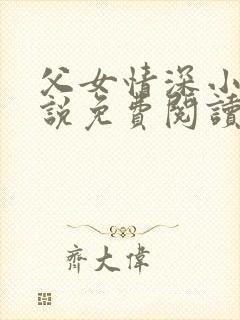 父女情深小
說免費閱讀
齊大偉